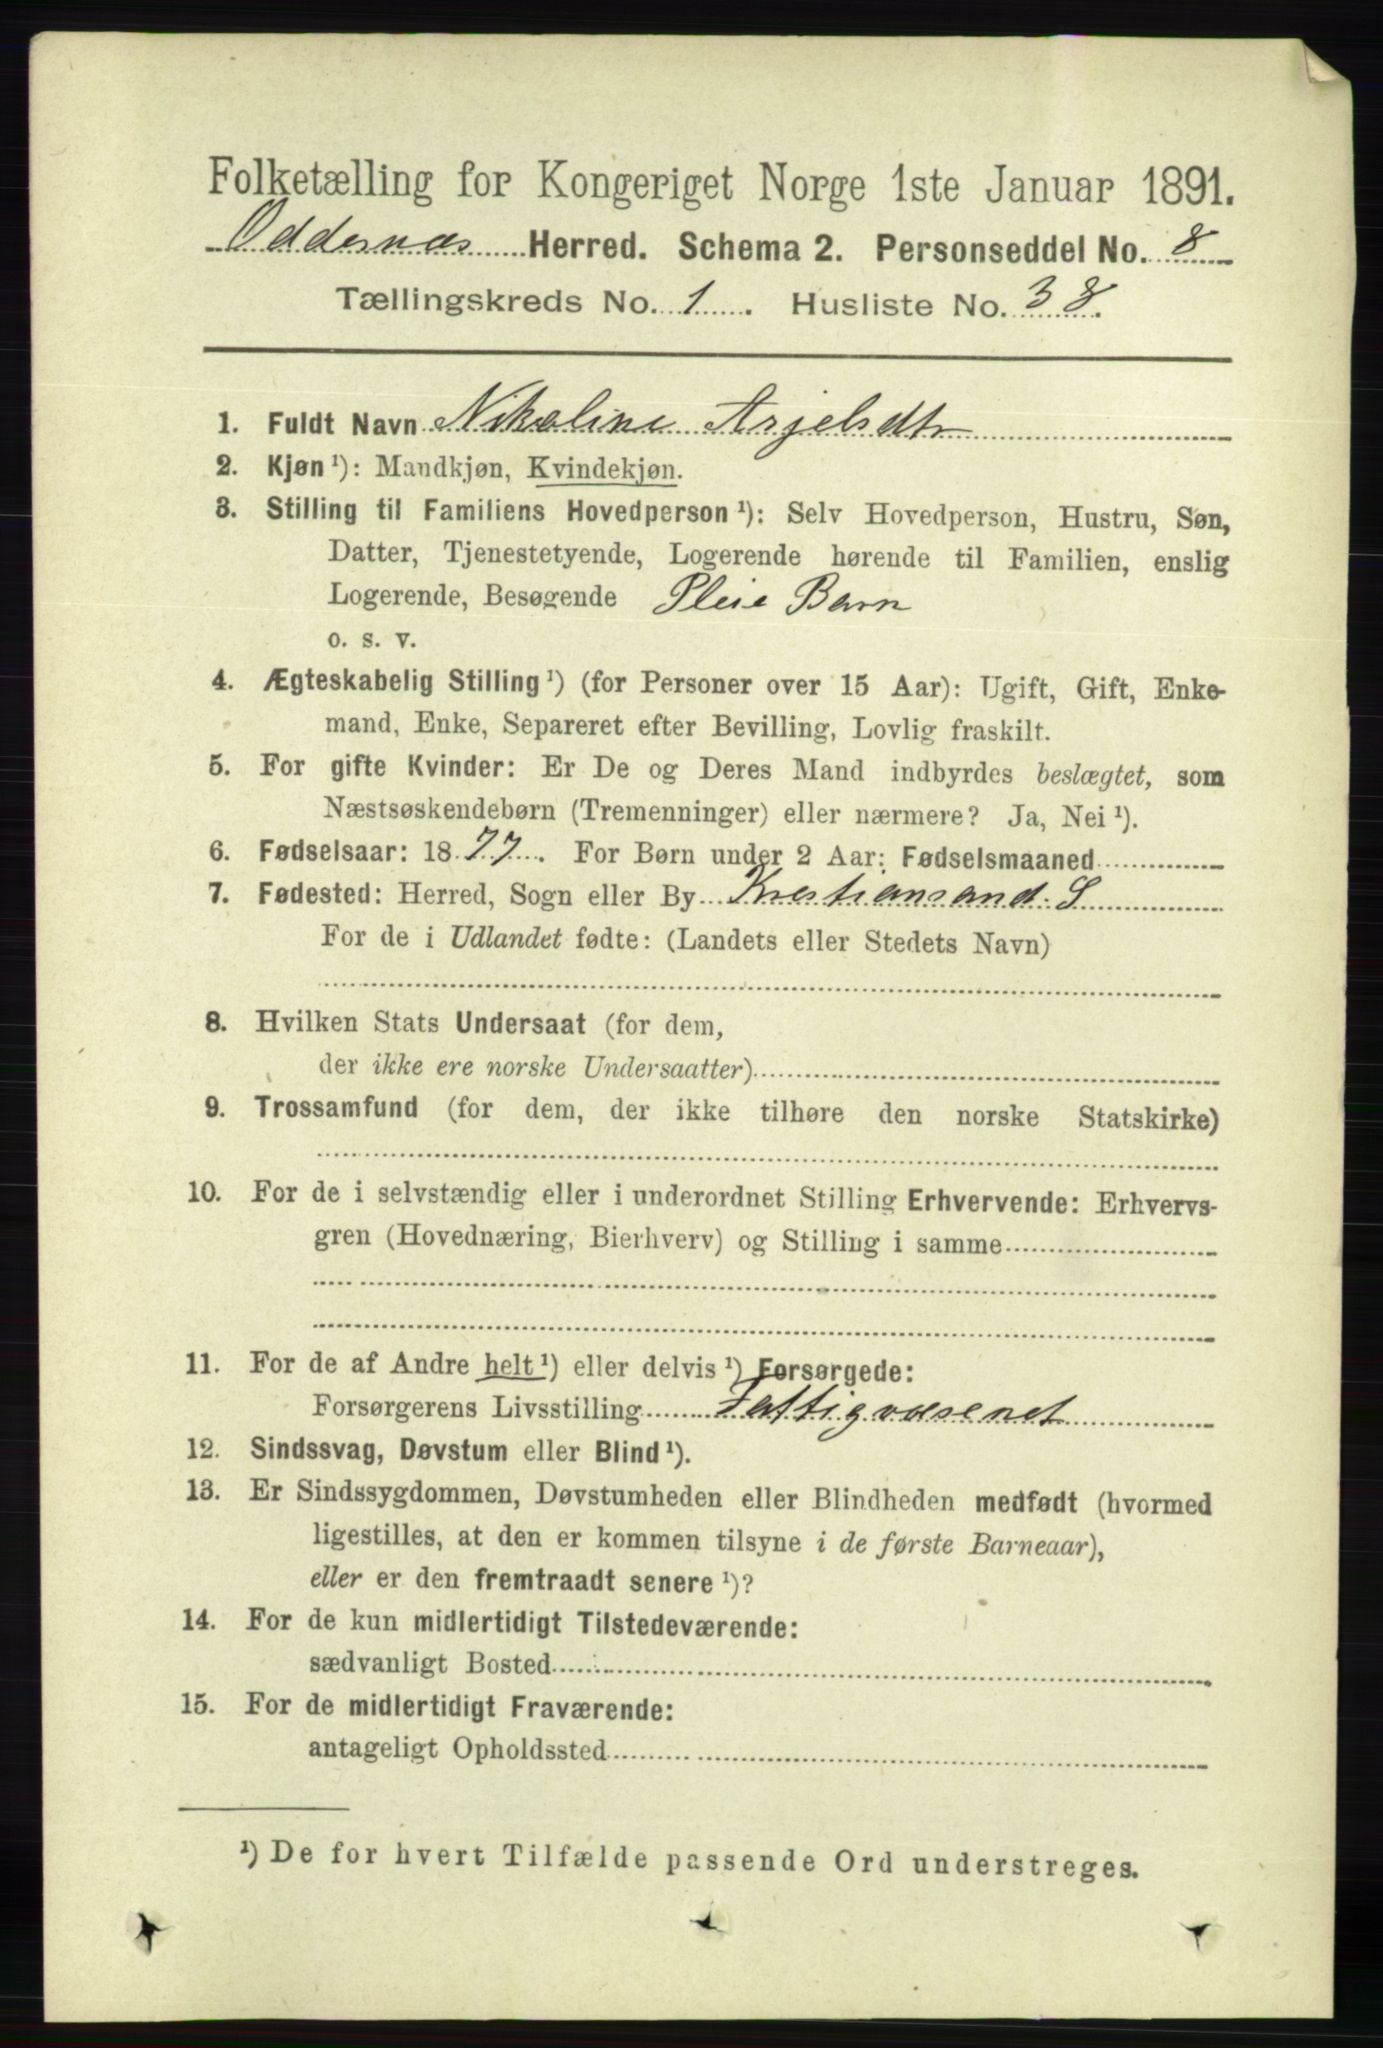 Folketælling for Kongeriget Norge 1ste Januar 1891.
Oddernæs Herred. Schema 2. Personseddel No. 8
Tællingskreds No. 1. Husliste No. 38.
1. Fuldt Navn Nikoline Asjelsdtr
2. Kjøn ¹): Mandkjøn, Kvindekjøn.
3. Stilling til Familiens Hovedperson ¹): Selv Hovedperson, Hustru, Søn,
Datter, Tjenestetyende, Logerende hørende til Familien, enslig
Logerende, Besøgende Pleie Barn
o. s. v.
4. Ægteskabelig Stilling ¹) (for Personer over 15 Aar): Ugift, Gift, Enke-
mand, Enke, Separeret efter Bevilling, Lovlig fraskilt.
5. For gifte Kvinder: Er De og Deres Mand indbyrdes beslægtet, som
Næstsøskendebørn (Tremenninger) eller nærmere? Ja, Nei ¹).
6. Fødselsaar: 1877. For Børn under 2 Aar: Fødselsmaaned
7. Fødested: Herred, Sogn eller By Krestiansand. S
For de i Udlandet fødte: (Landets eller Stedets Navn)
8. Hvilken Stats Undersaat (for dem,
der ikke ere norske Undersaatter)
9. Trossamfund (for dem, der ikke tilhøre den norske Statskirke)
10. For de i selvstændig eller i underordnet Stilling Erhvervende: Erhvervs-
gren (Hovednæring, Bierhverv) og Stilling i samme
11. For de af Andre helt ¹) eller delvis ¹) Forsørgede:
Forsørgerens Livsstilling Fattigvæsenet
12. Sindssvag, Døvstum eller Blind ¹).
13. Er Sindssygdommen, Døvstumheden eller Blindheden medfødt (hvormed
ligestilles, at den er kommen tilsyne i de første Barneaar),
eller er den fremtraadt senere ¹)?
14. For de kun midlertidigt Tilstedeværende:
sædvanligt Bosted
15. For de midlertidigt Fraværende:
antageligt Opholdssted
¹) De for hvert Tilfælde passende Ord understreges.